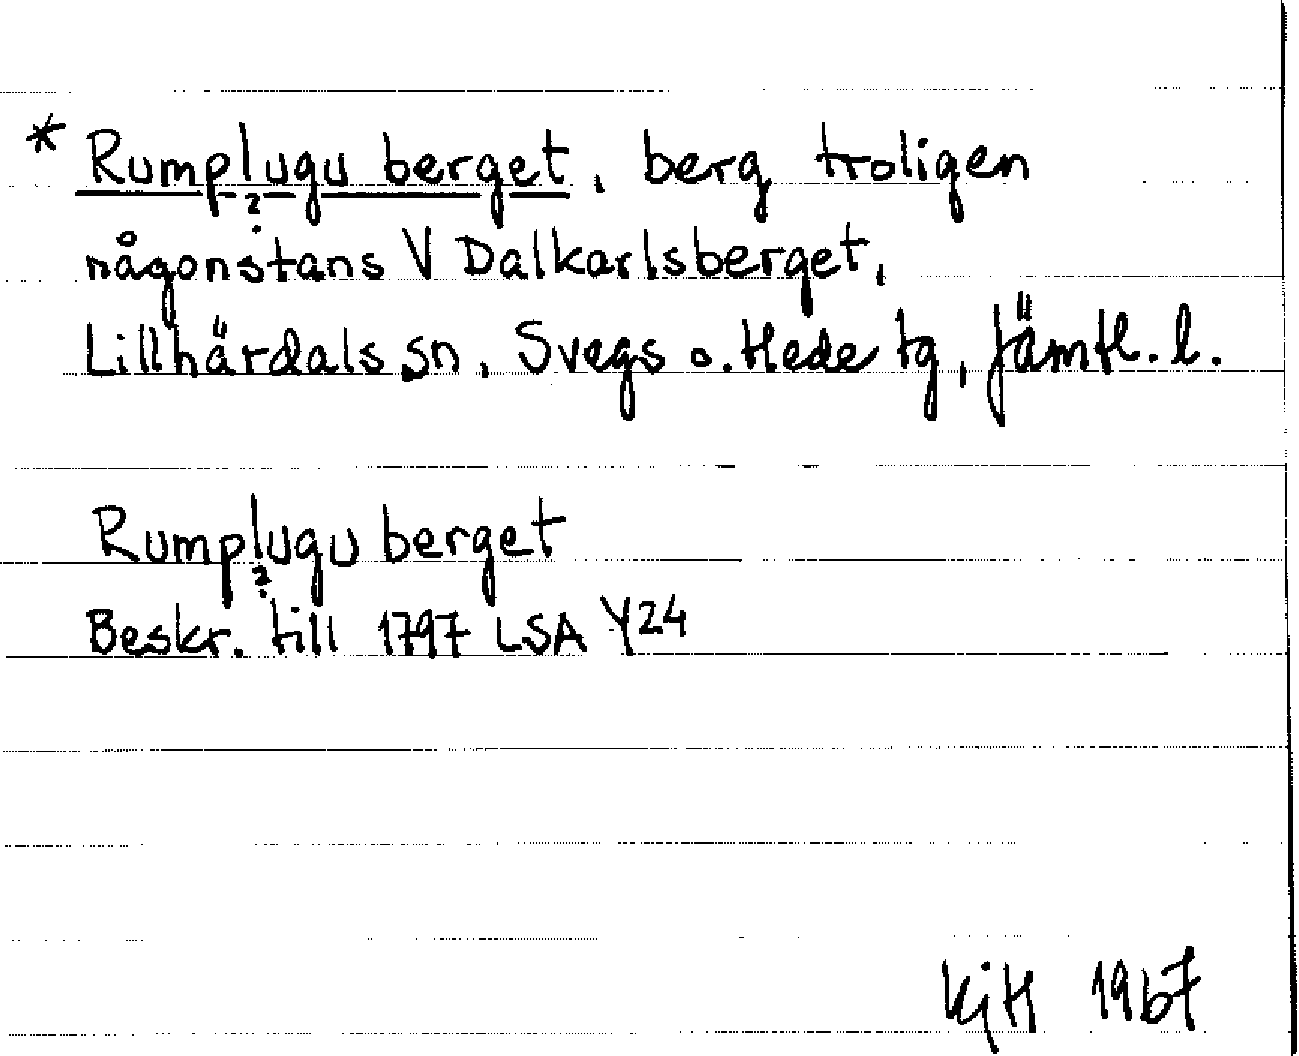 * Rumplugu berget, berg troligen
?
någonstans V Dalkarlsberget,
Lillhärdals sn, Svegs o. Hede tg, Jämtl. l.
Rumplugu berget
?
Beskr. till 1797 LSA Y24
KjH 1967